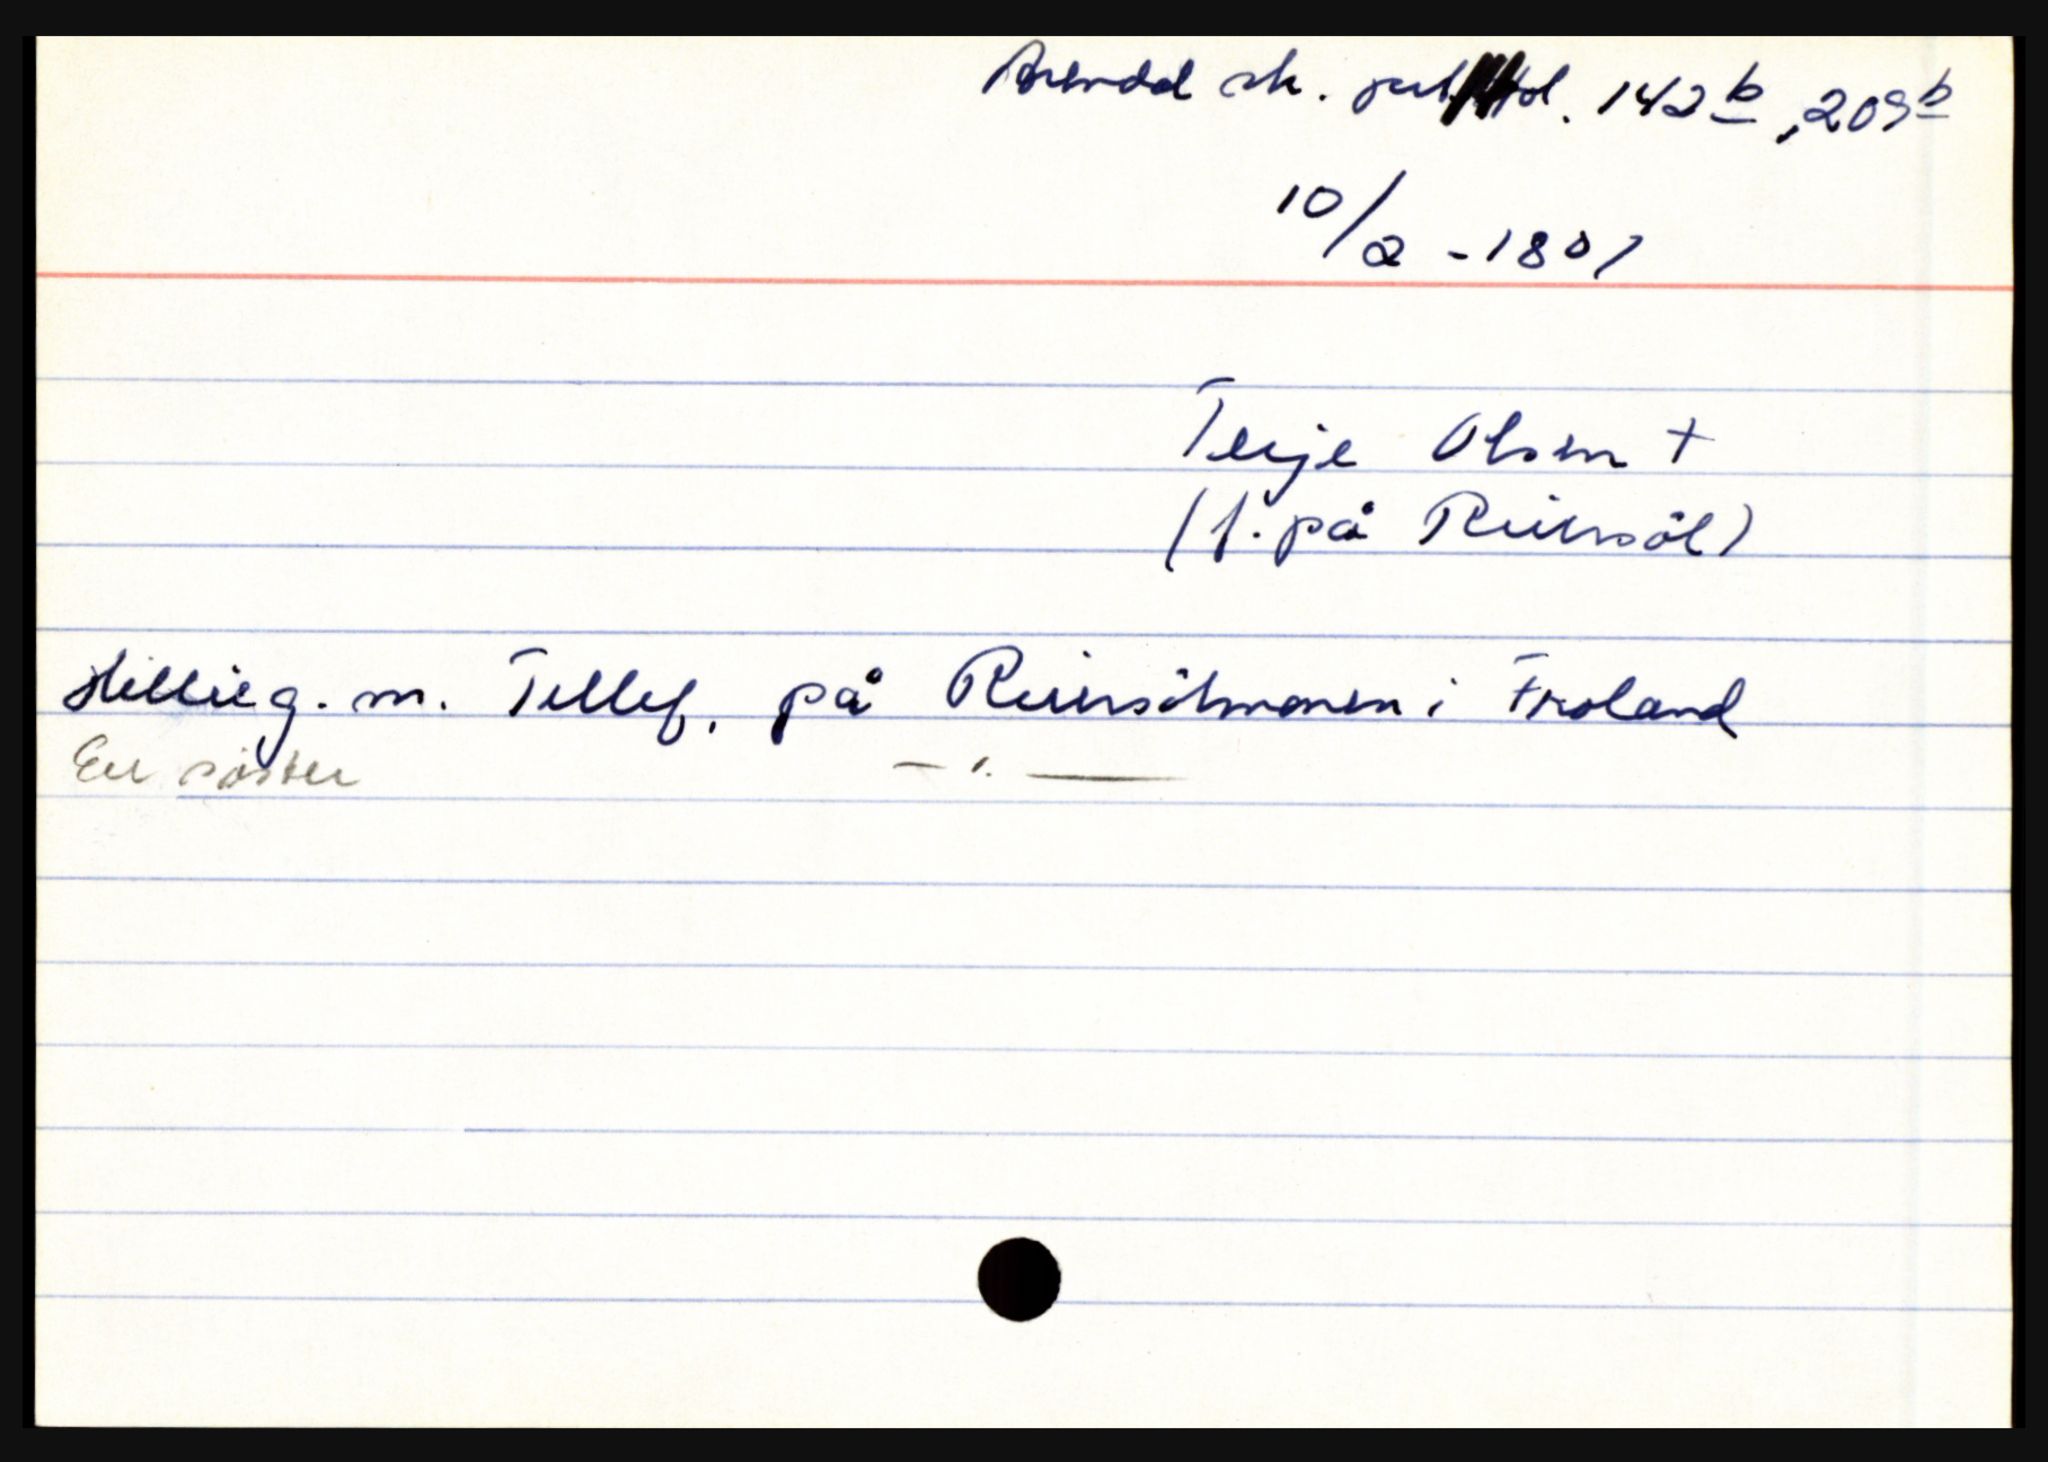 Arendal sk. prot. fol. 142 b, 209 b
10/2 - 1801
Terje Olsen +
(f. på Reiersöl)
Hellie g. m. Tellef, på Reiersölmonen i Froland
En söster — " —